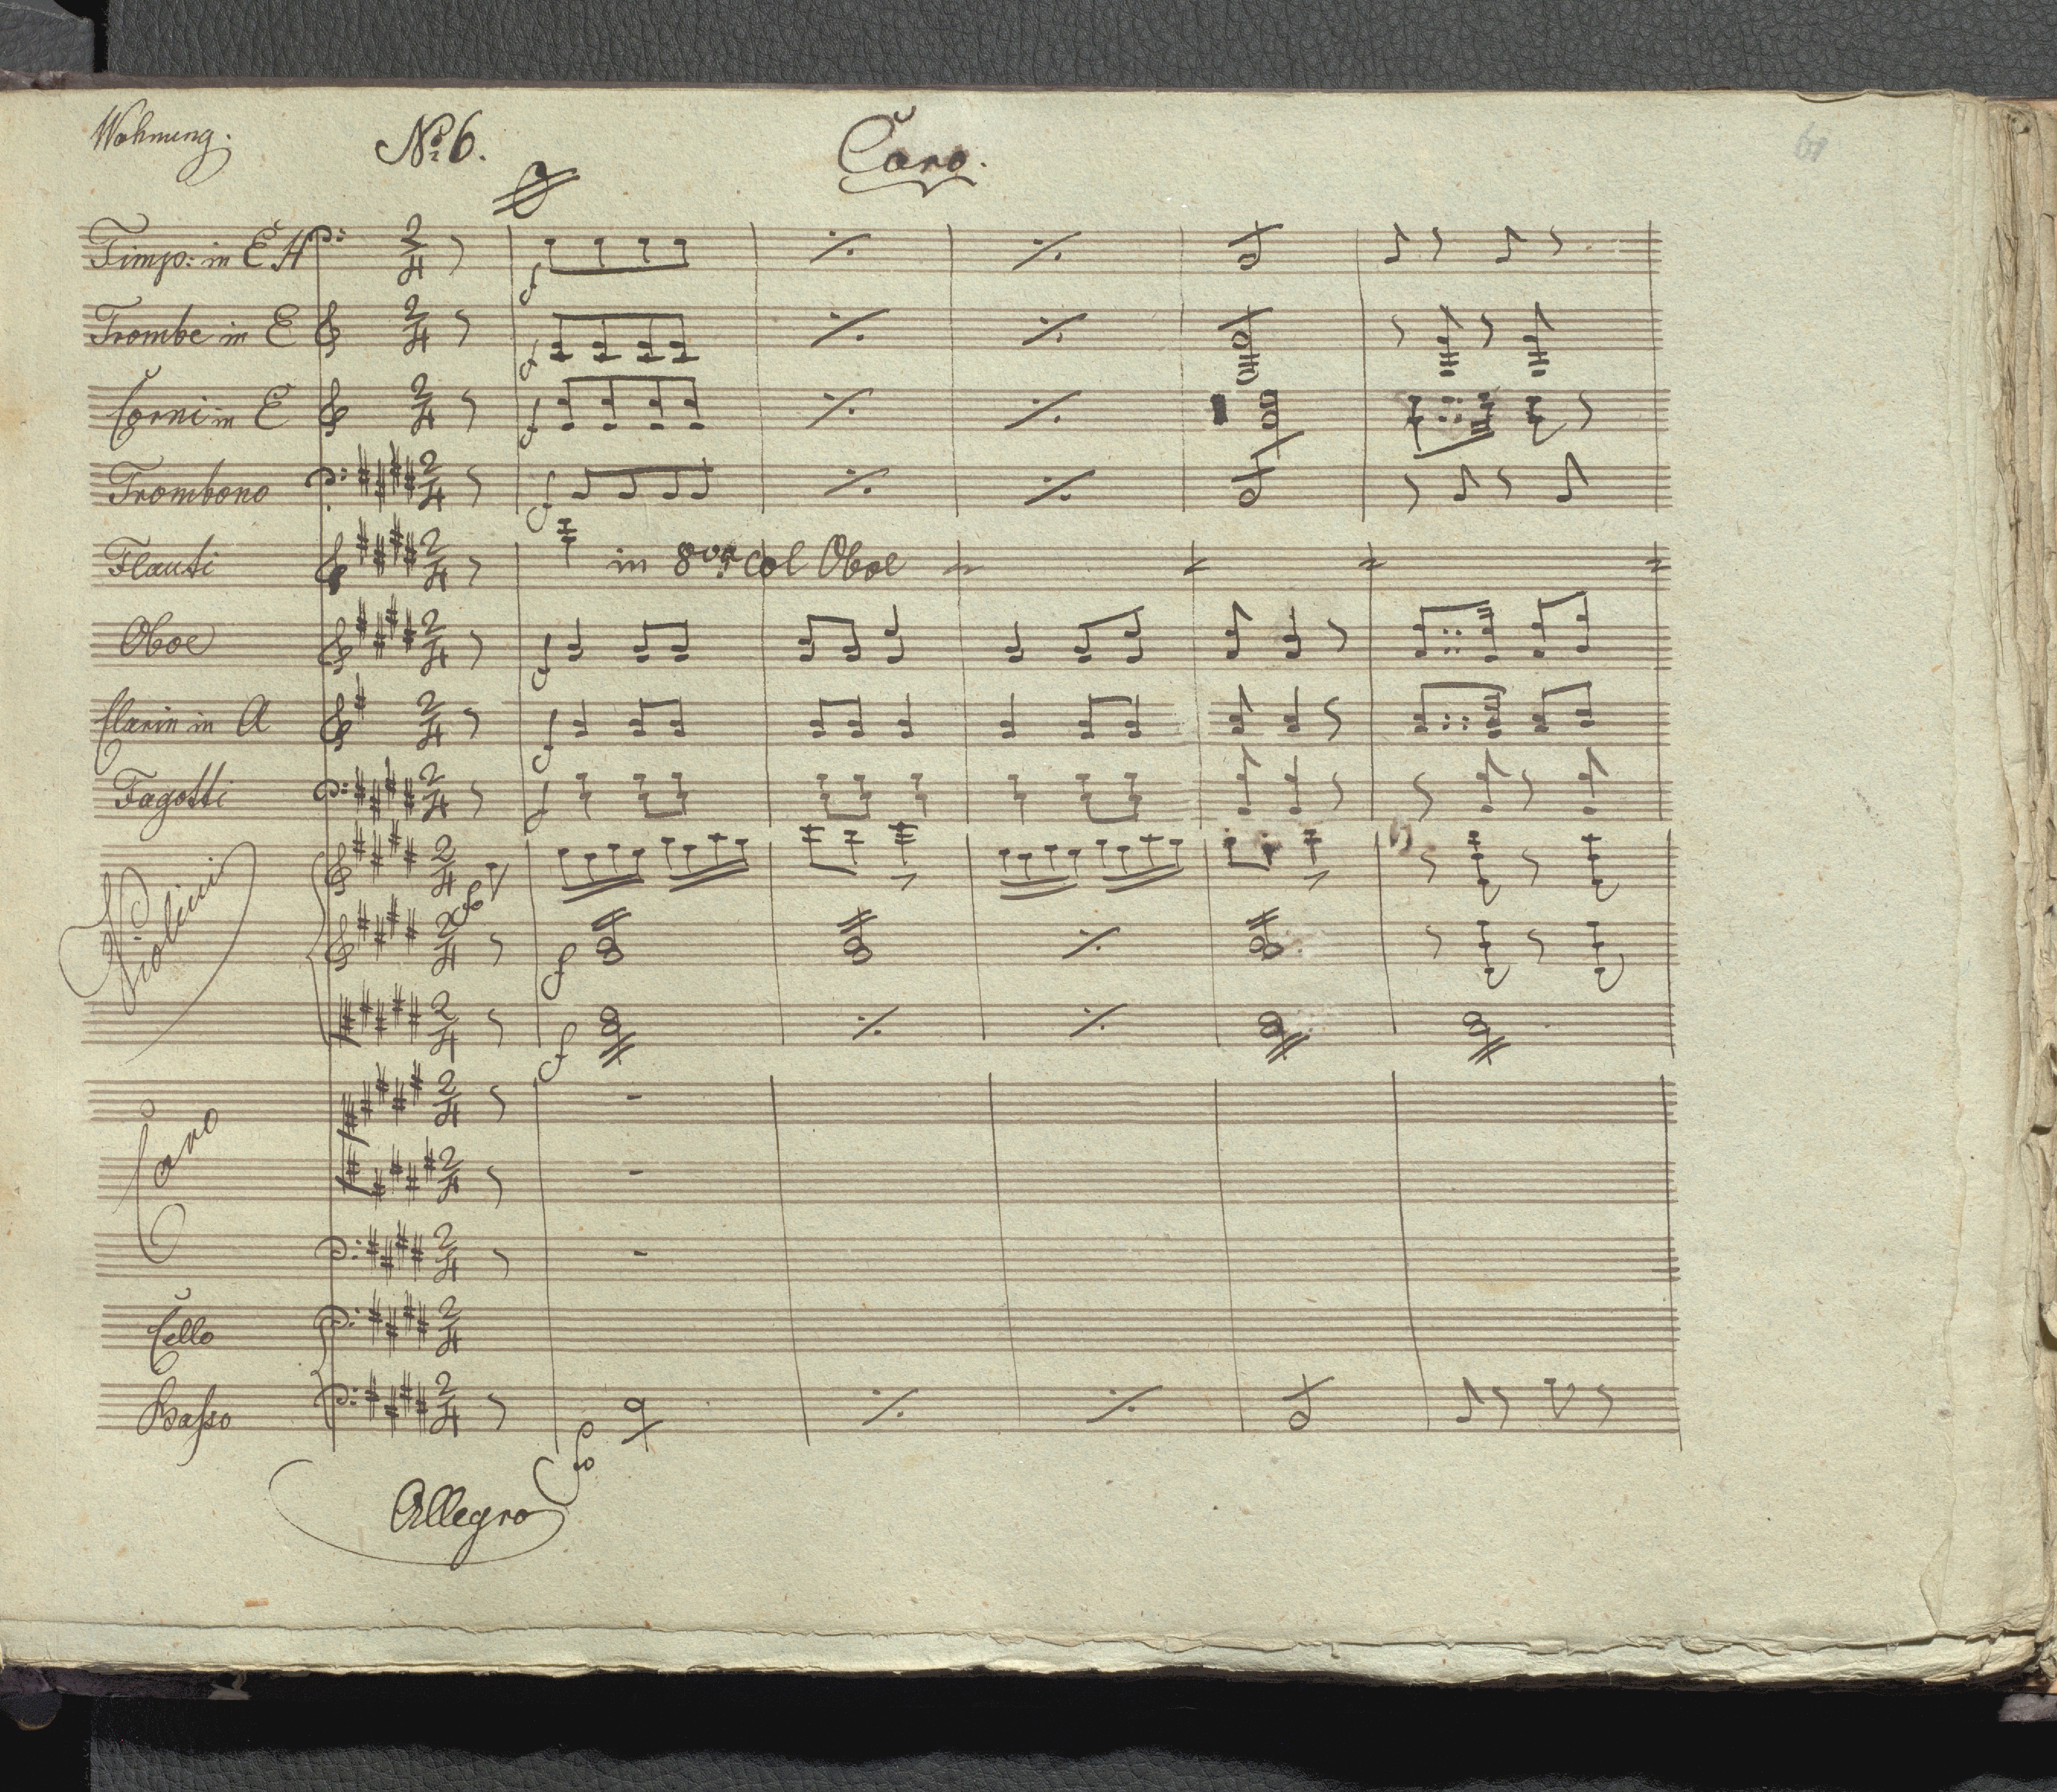 Wohnung. No. 6. Coro.
Timp: in E H
Trombe in E
Corni in E
Trombono
Flauti in 8va col Oboe
Oboe
Clarin in A
Fagotti
Violini
Coro
Cello
Basso
Allegro